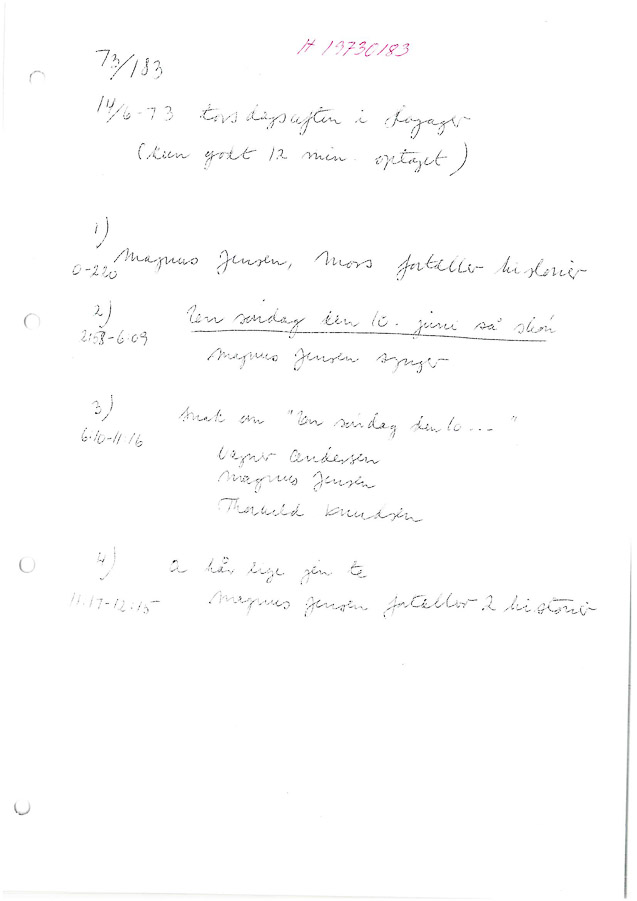 H 19730183
73/183
14/6-73 torsdagsaften i
(kun godt 12 min. optaget)
1)
0-220 Magnus Jensen, Mors fortæller historier
2) En søndag den 10. juni så skøn
2.58-6.09
Magnus Jensen synger
3) snak om "En søndag den 10... "
6.10-11.16
Vagner Andersen
Magnus Jensen
Thorkild Knudsen
4) a hår lige jen te
11.17-12.15 Magnus Jensen fortæller 2 historier